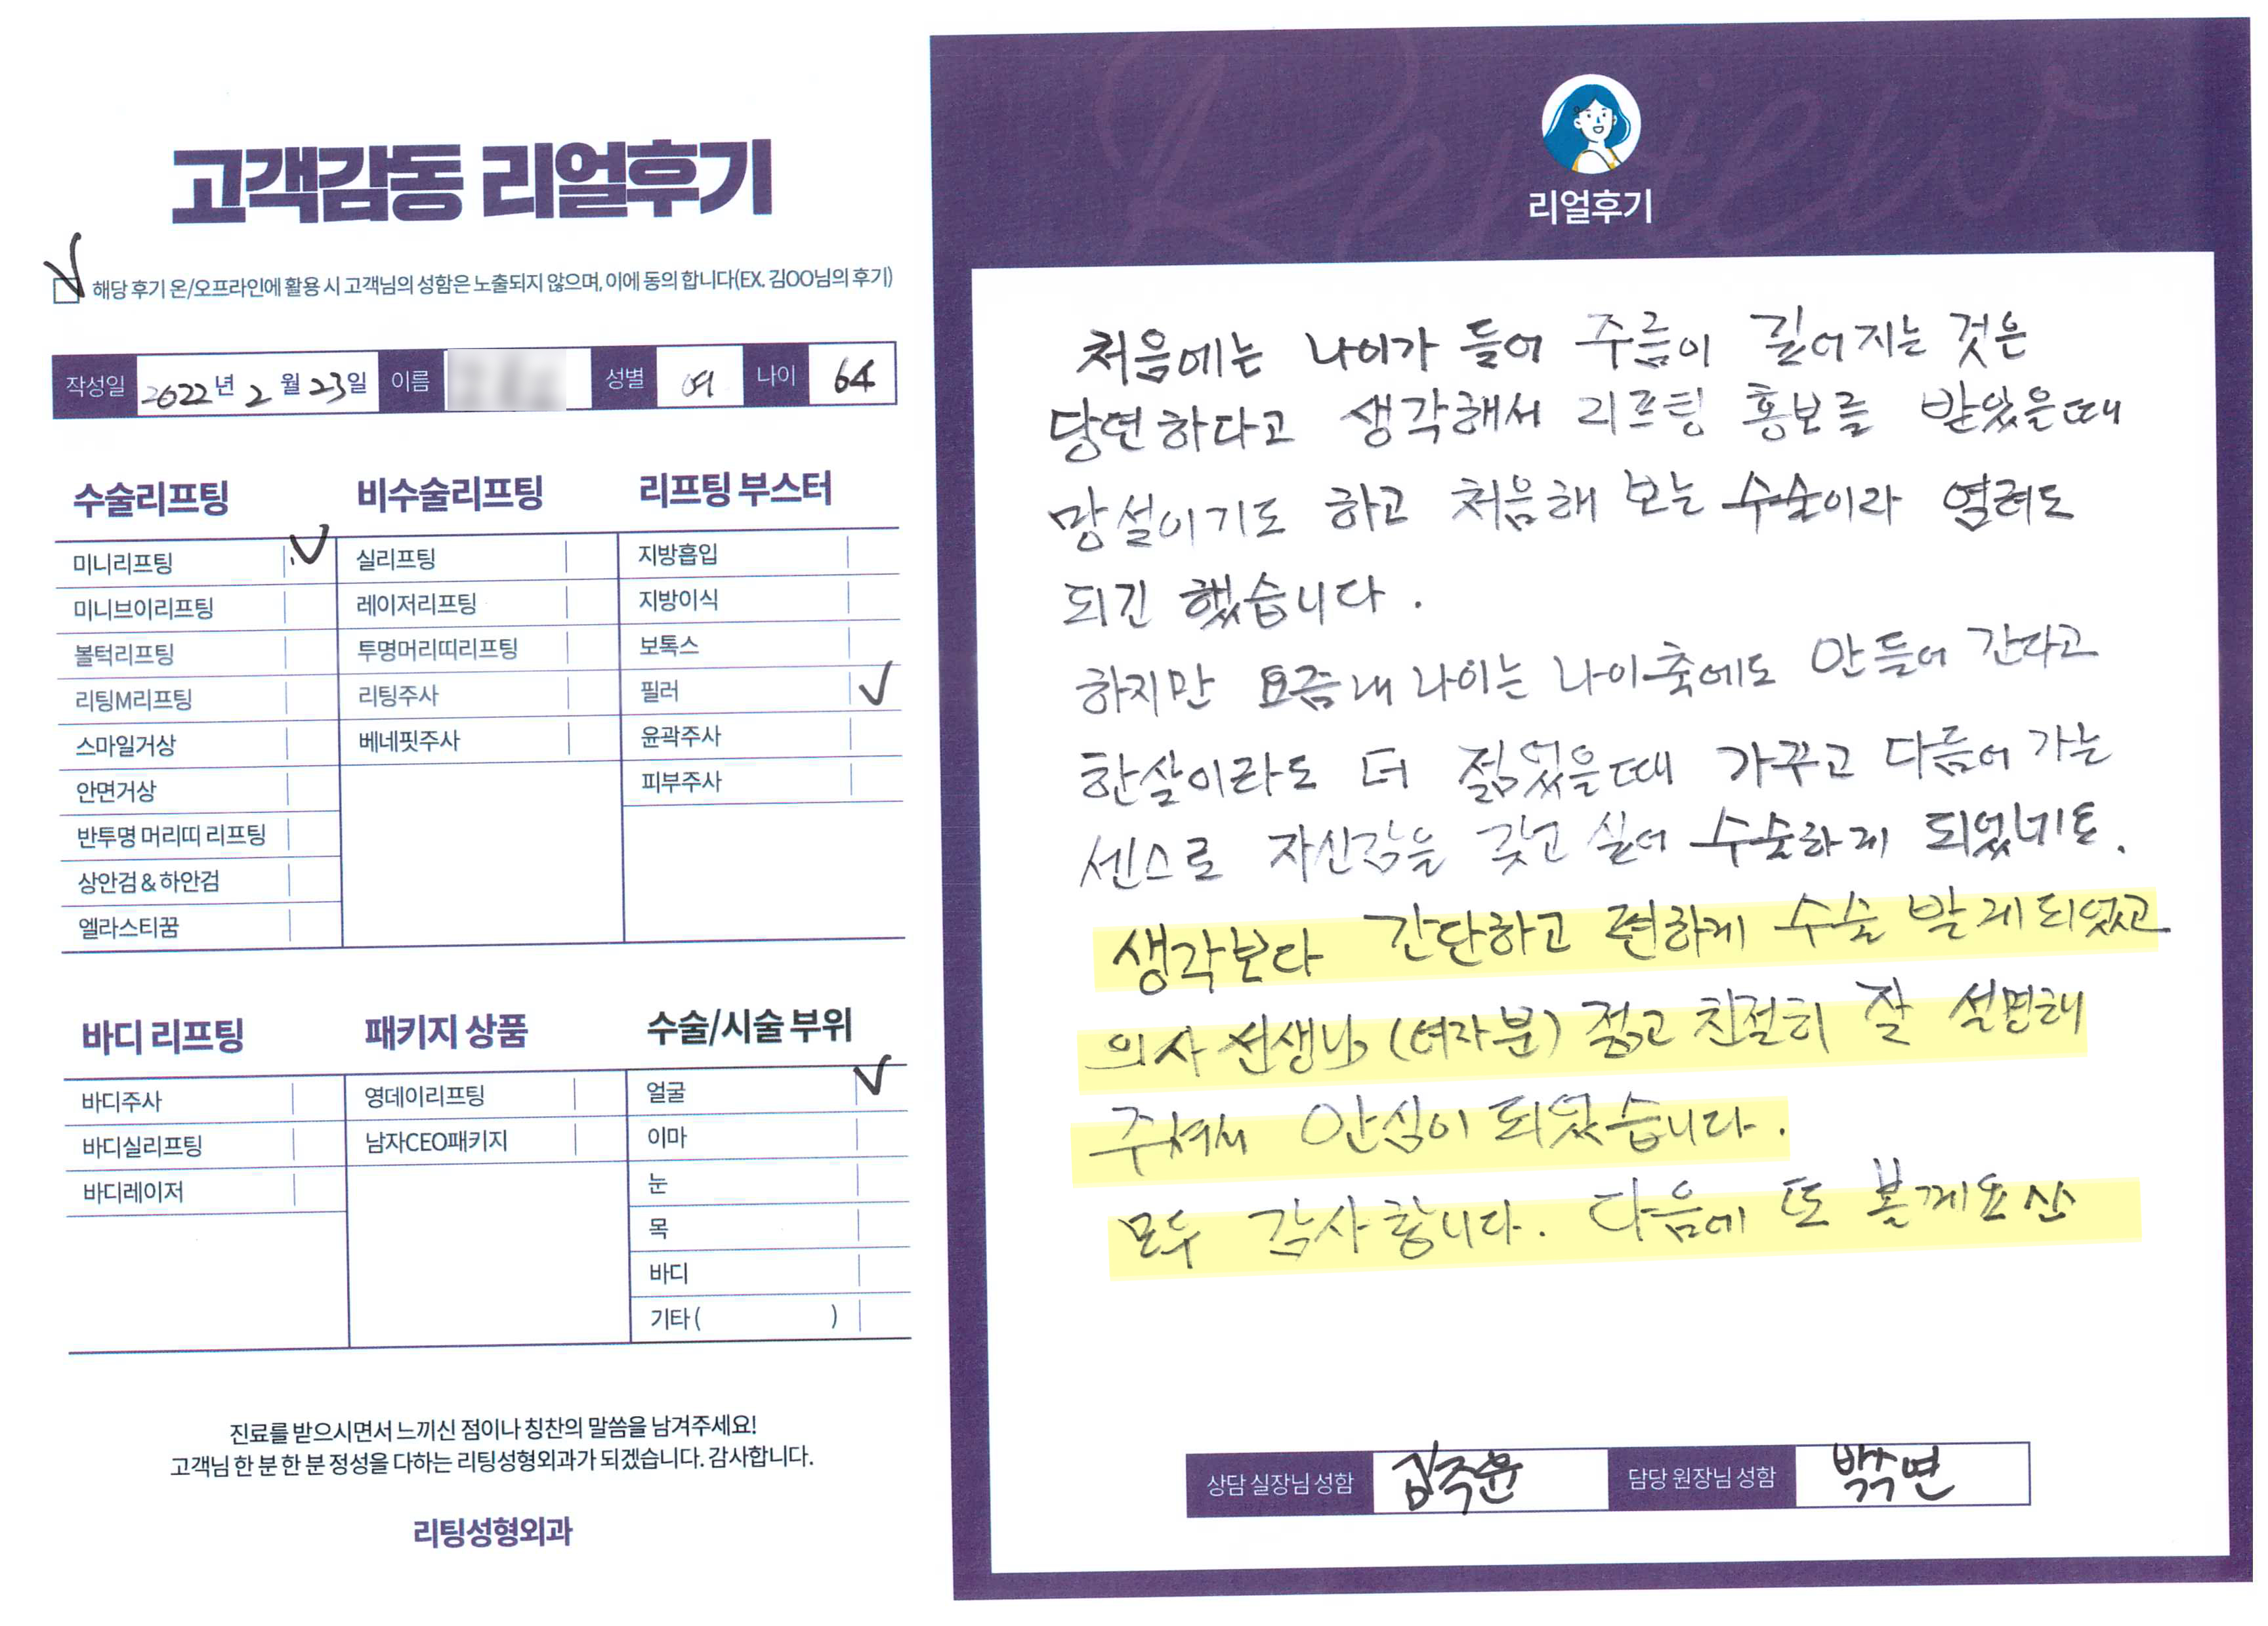 고객감동 리얼후기
해당 후기 온/오프라인에 활용 시 고객님의 성함은 노출되지 않으며, 이에 동의 합니다(EX. 김OO님의 후기)
작성일 2022년 2월 23일 이름 성별 여 나이 64
수술리프팅
미니리프팅
미니브이리프팅
볼턱리프팅
리팅M리프팅
스마일거상
안면거상
반투명 머리띠 리프팅
상안검 & 하안검
엘라스티꿈
비수술리프팅
실리프팅
레이저리프팅
투명머리띠리프팅
리팅주사
베네핏주사
리프팅 부스터
지방흡입
지방이식
보톡스
필러
윤곽주사
피부주사
바디 리프팅
바디주사
바디실리프팅
바디레이저
패키지 상품
영데이리프팅
남자CEO패키지
수술/시술 부위
얼굴
이마
눈
목
바디
기타 ( )
진료를 받으시면서 느끼신 점이나 칭찬의 말씀을 남겨주세요!
고객님 한 분 한 분 정성을 다하는 리팅성형외과가 되겠습니다. 감사합니다.
리팅성형외과
Review
리얼후기
처음에는 나이가 들어 주름이 깊어지는 것은
당연하다고 생각해서 리프팅 홍보를 받았을때
망설이기도 하고 처음해 보는 수술이라 염려도
되긴 했습니다.
하지만 요즘 내 나이는 나이축에도 안들어 간다고
한살이라도 더 젊었을때 가꾸고 다듬어 가는
센스로 자신감을 갖고 싶어 수술하게 되었네요.
생각보다 간단하고 편하게 수술 받게 되었고
의사 선생님 (여자분) 젊고 친절히 잘 설명해
주셔서 안심이 되었습니다.
모두 감사합니다. 다음에 또 볼께요
상담 실장님 성함 김주윤 담당 원장님 성함 백수연